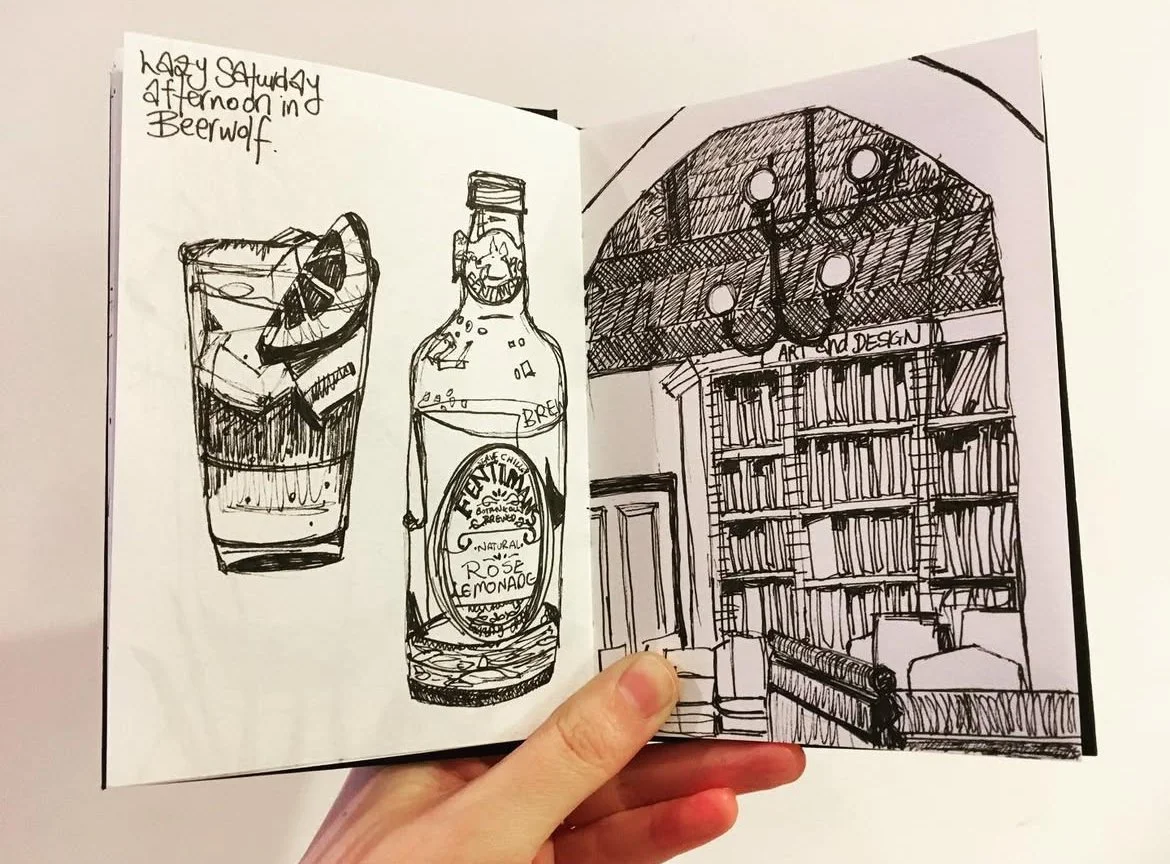 Lazy Saturday
afternoon in
Beerwolf.
BREW
SERVE CHILLED
FENTIMANS
BOTANICALLY
BREWED
NATURAL
ROSE
LEMONADE
ART and DESIGN